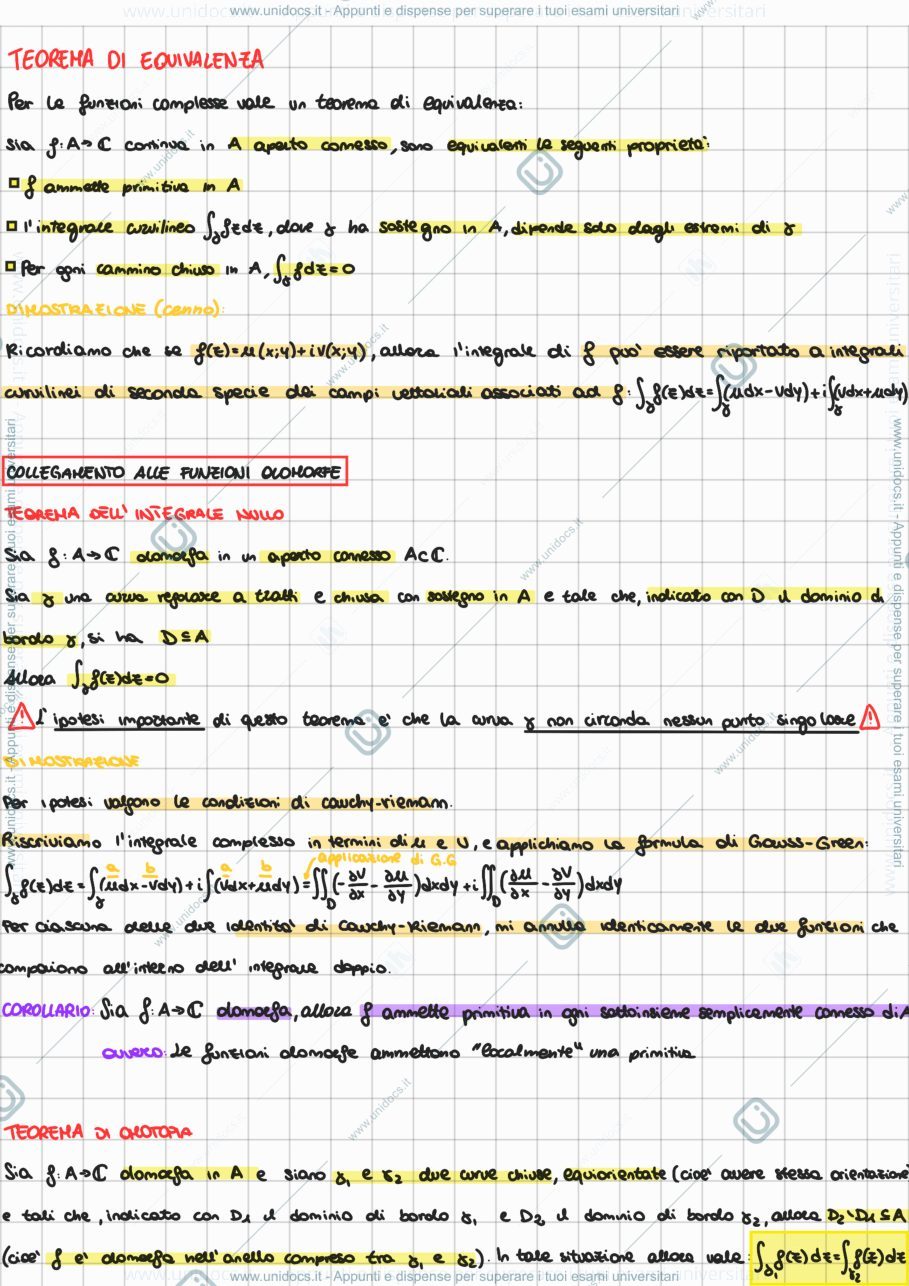 www.unidocs.it - Appunti e dispense per superare i tuoi esami universitari
TEOREMA DI EQUIVALENZA
Per le funzioni complesse vale un teorema di equivalenza:
Sia f: A→ℂ continua in A aperto connesso, sono equivalenti le seguenti proprietà:
□ f ammette primitiva in A
□ l'integrale curvilineo ∫_γ fzdz, dove γ ha sostegno in A, dipende solo dagli estremi di γ
□ Per ogni cammino chiuso in A, ∫_γ fdz=0
DIMOSTRAZIONE (cenno):
Ricordiamo che se f(z)=u(x;y)+iv(x;y), allora l'integrale di f può essere riportato a integrali
curvilinei di seconda specie dei campi vettoriali associati ad f: ∫_γ f(z)dz=∫_γ(udx-vdy)+i∫_γ(vdx+udy)
COLLEGAMENTO ALLE FUNZIONI OLOMORFE
TEOREMA DELL'INTEGRALE NULLO
Sia f: A→ℂ olomorfa in un aperto connesso A⊂ℂ.
Sia γ una curva regolare a tratti e chiusa con sostegno in A e tale che, indicato con D il dominio di
bordo γ, si ha D⊆A
Allora ∫_γ f(z)dz=0
⚠ L'ipotesi importante di questo teorema e' che la curva γ non circonda nessun punto singolare ⚠
DIMOSTRAZIONE
Per ipotesi valgono le condizioni di cauchy-riemann.
Riscriviamo l'integrale complesso in termini di u e v, e applichiamo la formula di Gauss-Green:
a b a b applicazione di G.G
∫_γ f(z)dz=∫_γ(udx-vdy)+i∫_γ(vdx+udy)=∬_D(-∂v/∂x - ∂u/∂y)dxdy+i∬_D(∂u/∂x - ∂v/∂y)dxdy
Per ciascuna delle due identità di Cauchy-Riemann, mi annulla identicamente le due funzioni che
compaiono all'interno dell'integrale doppio.
COROLLARIO: Sia f: A→ℂ olomorfa, allora f ammette primitiva in ogni sottoinsieme semplicemente connesso di A
ovvero: Le funzioni olomorfe ammettono "localmente" una primitiva
TEOREMA DI OMOTOPIA
Sia f: A→ℂ olomorfa in A e siano γ₁ e γ₂ due curve chiuse, equiorientate (cioe' avere stessa orientazione
e tali che, indicato con D₁ il dominio di bordo γ₁ e D₂ il dominio di bordo γ₂, allora D₂\D₁⊆A
(cioe' f e' olomorfa nell'anello compreso tra γ₁ e γ₂). In tale situazione allora vale: ∫_γ₁ f(z)dz=∫_γ₂ f(z)dz
www.unidocs.it - Appunti e dispense per superare i tuoi esami universitari